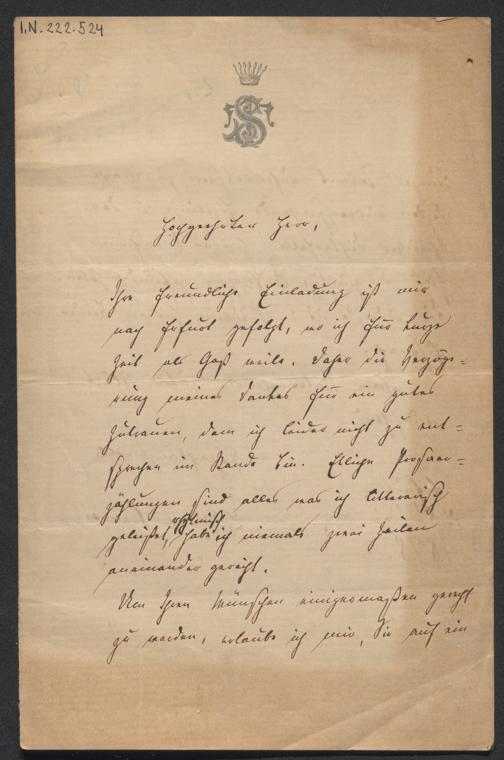 I.N. 222.524
Hochgeehrter Herr,
Ihre freundliche Einladung ist mir
nach Erfurt gefolgt, wo ich für kurze
Zeit als Gast weile. Daher die Verzöge-
rung meines Dankes für ein gütes
Zutrauen, dem ich leider nicht zu ent-
sprechen im Stande bin. Etliche Prosaer-
zählungen sind alles was ich litterarisch
geleistet, rhythmisch habe ich niemals zwei Zeilen
aneinander gereiht.
Um Ihren Wünschen einigermaßen gerecht
zu werden, erlaube ich mir, Sie auf ein